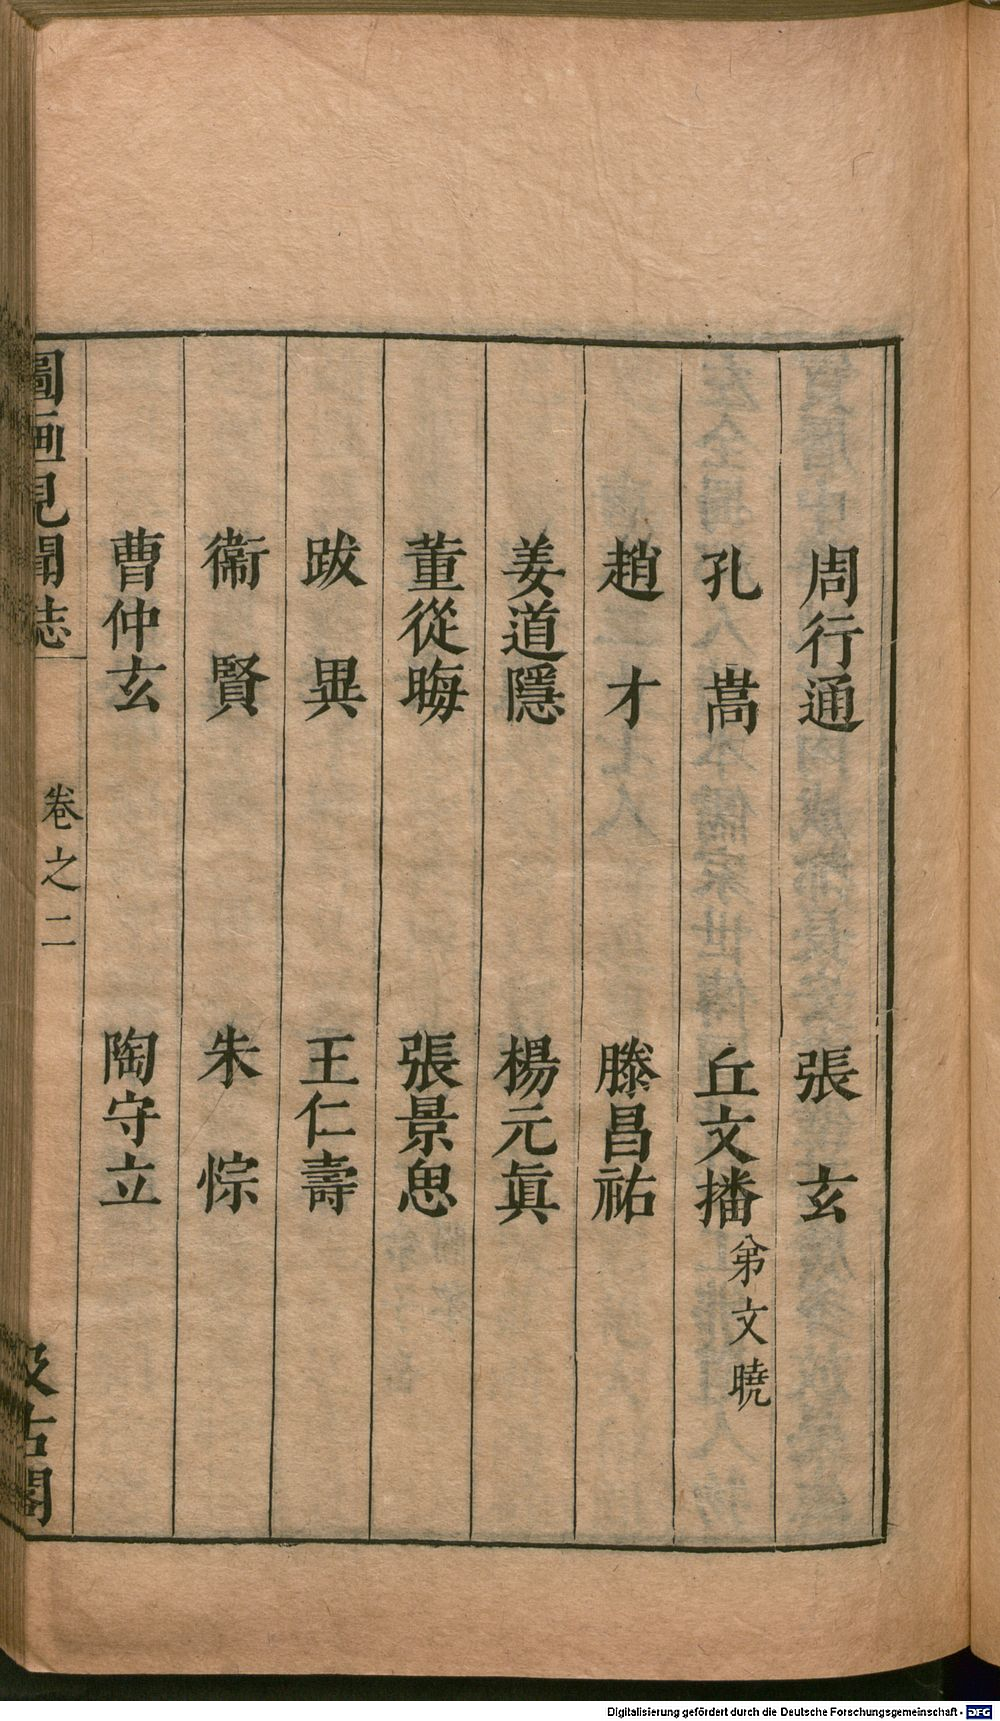 周行通　張玄
孔嵩　丘文播 弟文曉
趙才　滕昌祐
姜道隱　楊元眞
董從晦　張景思
跋異　王仁壽
衞賢　朱悰
曹仲玄　陶守立
圖画見聞志　卷之二　汲古閣
Digitalisierung gefördert durch die Deutsche Forschungsgemeinschaft - DFG